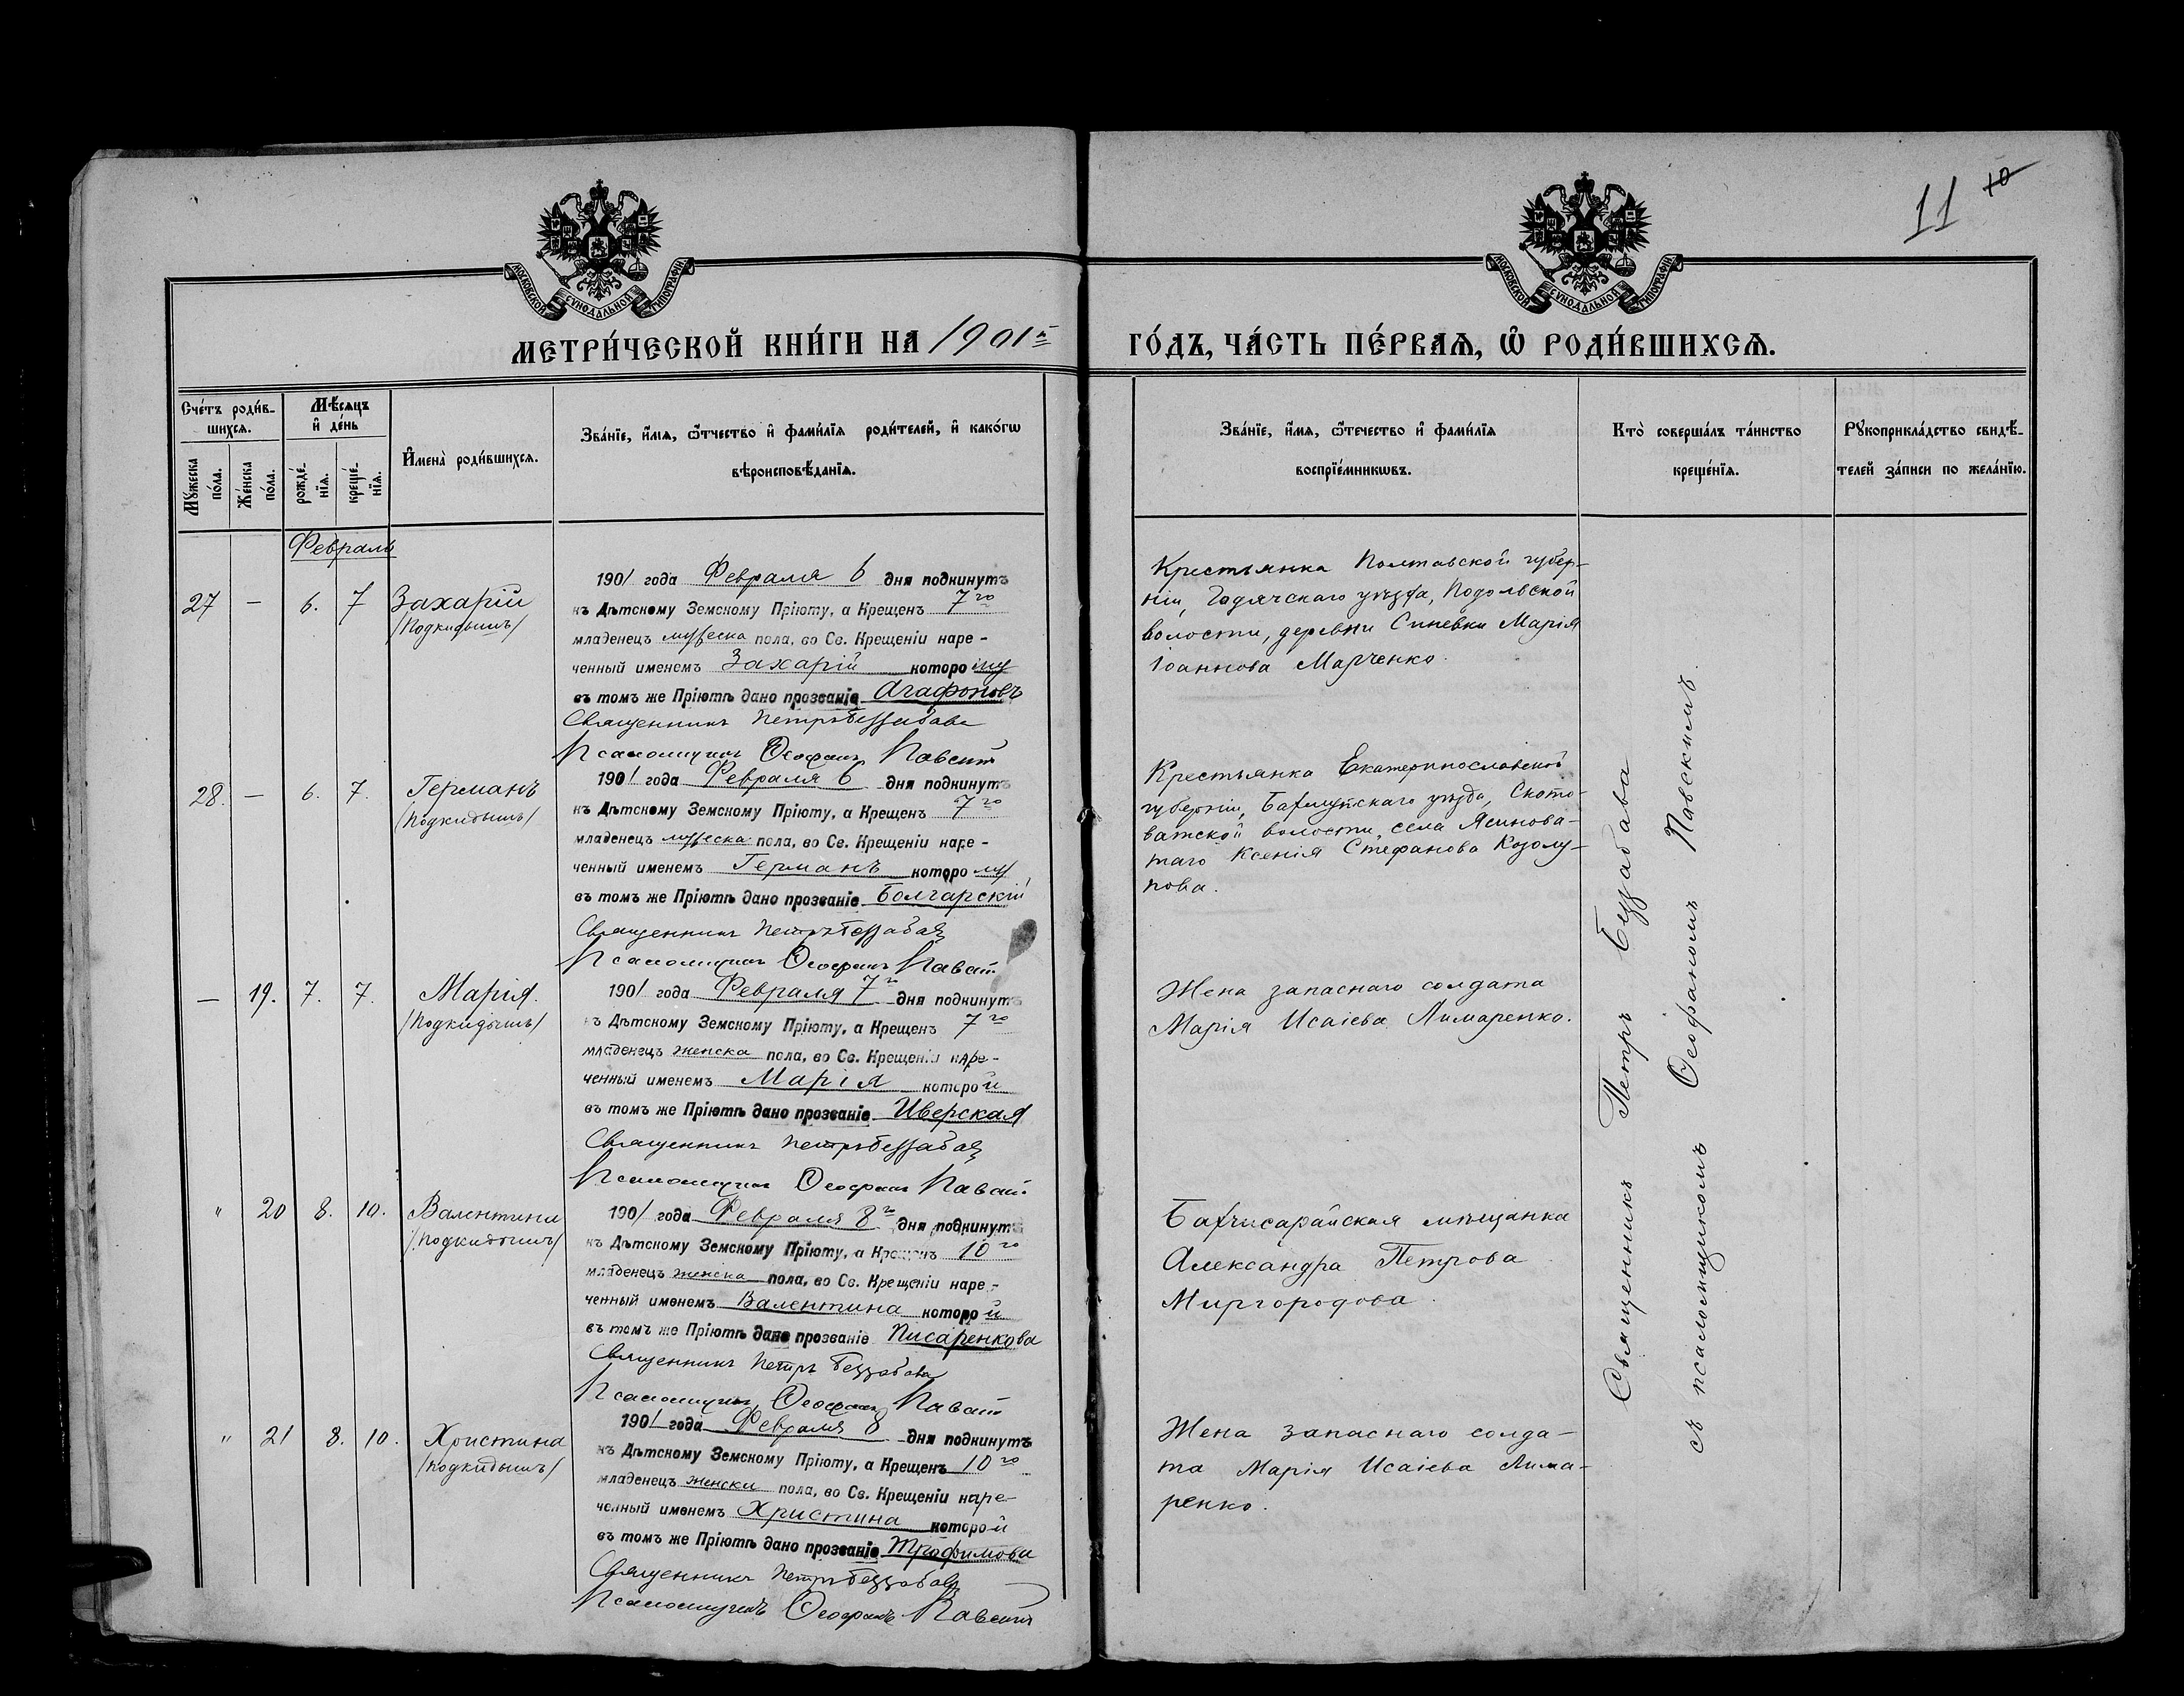 11 10
МОСКОВСКОЙ СУНОДАЛЬНОЙ ТИПОГРАФІИ
МОСКОВСКОЙ СУНОДАЛЬНОЙ ТИПОГРАФІИ
МЕТРИ́ЧЕСКОЙ КНИ́ГИ НА 1901й ГО́ДЪ, ЧА́СТЬ ПЕ́РВАѦ, Ѡ҆ РОДИ́ВШИХСѦ.
Сче́тъ роди́в-
шихсѧ.
Мѣ́сѧцъ
и҆ де́нь
Мꙋ́жеска
по́ла.
Же́нска
по́ла.
рожде́-
нїѧ.
креще́-
нїѧ.
И҆мена̀ роди́вшихсѧ.
Зва́нїе, и҆́мѧ, ѻ҆́тчество и҆ фами́лїѧ роди́телей, и҆ како́гѡ
вѣроисповѣ́данїѧ.
Зва́нїе, и҆́мѧ, ѻ҆те́чество и҆ фами́лїѧ
воспрїе́мникѡвъ.
Кто̀ соверша́лъ та́инство
креще́нїѧ.
Рꙋкоприкла́дство свидѣ́-
телей за́писи по жела́нїю.
Февраль
27 — 6. 7 Захарій
/Подкидышъ/
1901 года Февраля 6 дня подкинутъ
къ Дѣтскому Земскому Пріюту, а Крещенъ 7го
младенецъ мужеска пола, во Св. Крещеніи наре-
ченный именемъ Захарій которому
въ томъ же Пріютѣ дано прозваніе Агафоновъ
Священникъ Петръ Беззабава
Псаломщикъ Ѳеофанъ Павскій
Крестьянка Полтавской губер-
ніи, Гадячскаго уѣзда, Подольской
волости, деревни Синевки Марія
Іоаннова Марченко.
28. — 6. 7. Германъ
/Подкидышъ/
1901 года Февраля 6 дня подкинутъ
къ Дѣтскому Земскому Пріюту, а Крещенъ 7го
младенецъ мужеска пола, во Св. Крещеніи наре-
ченный именемъ Германъ которому
въ томъ же Пріютѣ дано прозваніе Болгарскій
Священникъ Петръ Беззабава
Псаломщикъ Ѳеофанъ Павскій
Крестьянка Екатеринославской
губерніи, Бахмутскаго уѣзда, Ското-
ватской волости, села Ясинова-
таго Ксенія Стефанова Козолу-
пова.
— 19. 7. 7. Марія.
/Подкидышъ/
1901 года Февраля 7го дня подкинутъ
къ Дѣтскому Земскому Пріюту, а Крещенъ 7го
младенецъ женска пола, во Св. Крещеніи наре-
ченный именемъ Марія которой
въ томъ же Пріютѣ дано прозваніе Иверская
Священникъ Петръ Беззабава
Псаломщикъ Ѳеофанъ Павскій
Жена запаснаго солдата
Марія Исаіева Лимаренко.
" 20 8. 10. Валентина
/Подкидышъ/
1901 года Февраля 8го дня подкинутъ
къ Дѣтскому Земскому Пріюту, а Крещенъ 10го
младенецъ женска пола, во Св. Крещеніи наре-
ченный именемъ Валентина которой
въ томъ же Пріютѣ дано прозваніе Писаренкова
Священникъ Петръ Беззабава
Псаломщикъ Ѳеофанъ Павскій
Бахчисарайская мѣщанка
Александра Петрова
Миргородова.
" 21 8. 10. Христина
/Подкидышъ/
1901 года Февраля 8 дня подкинутъ
къ Дѣтскому Земскому Пріюту, а Крещенъ 10го
младенецъ женска пола, во Св. Крещеніи наре-
ченный именемъ Христина которой
въ томъ же Пріютѣ дано прозваніе Трофимова
Священникъ Петръ Беззабава
Псаломщикъ Ѳеофанъ Павскій
Жена запаснаго солда-
та Марія Исаіева Лима-
ренко.
Священникъ Петръ Беззабава
съ псаломщикомъ Ѳеофаномъ Павскимъ